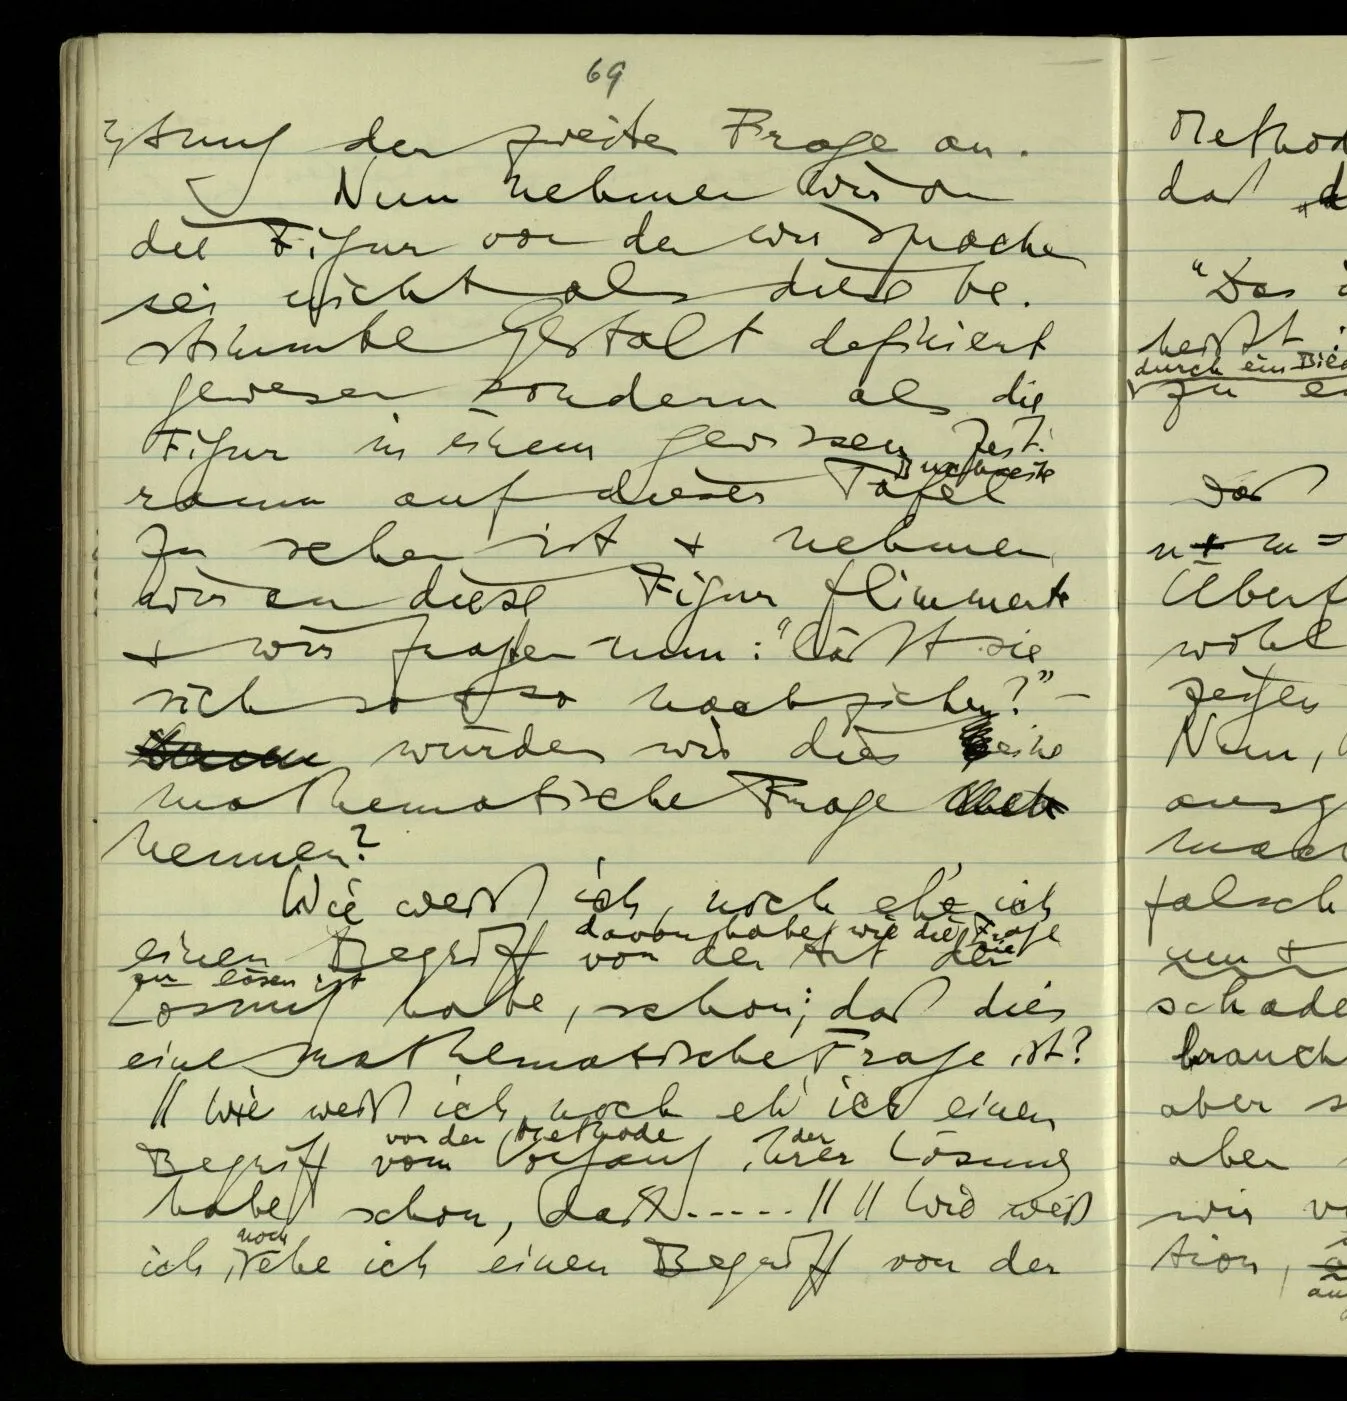 69
der zweiten Frage an.
Nun nehmen wir an
die Figur von der wir sprachen
sei nicht als diese be-
stimmte Gestalt definiert
gewesen sondern als die
Figur die in einem gewissen Zeit-
Buchseite
raum auf dieser Tafel
zu sehen ist + nehmen
wir an diese Figur flimmerte
+ wir fragen nun: "läßt sie
sich so + so nachziehen?" –
würden wir dies eine
mathematische Frage
nennen?
Wie weiß ich, noch ehe ich
davon habe, wie die Frage
einen Begriff von der Art der
zu lösen ist
Lösung habe, schon, daß dies
eine mathematische Frage ist?
// Wie weiß ich, noch eh' ich einen
von der Methode der
Begriff vom Vorgang ihrer Lösung
habe, schon, daß ..... // // Wie weiß
noch
ich, ehe ich einen Begriff von der
Method
daß
"Das
heißt
durch ein Bild
zu
Daß
n + m =
wohl
zeigen
Nun,
falsch
um +
schade
brauch
aber s
aber
wir
tion,